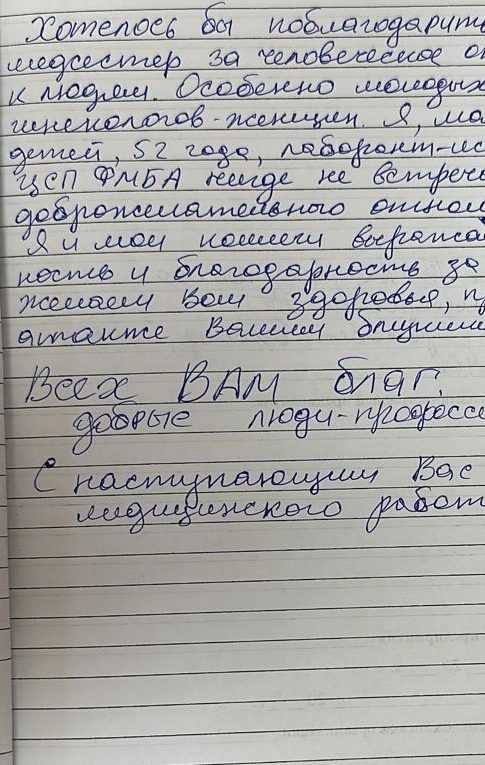 Хотелось бы поблагодарить
медсестер за человеческое от
к людям. Особенно молодых
гинекологов-женщин. Я, ма
детей, 52 года, лаборант-ис
ЦСП ФМБА нигде не встреч
доброжелательного отнош
Я и мои коллеги выража
ность и благодарность за
желаем Вам здоровья, п
а также Вашим близким
Всех ВАМ благ,
добрые люди-професс
С наступающим Вас
медицинского работ